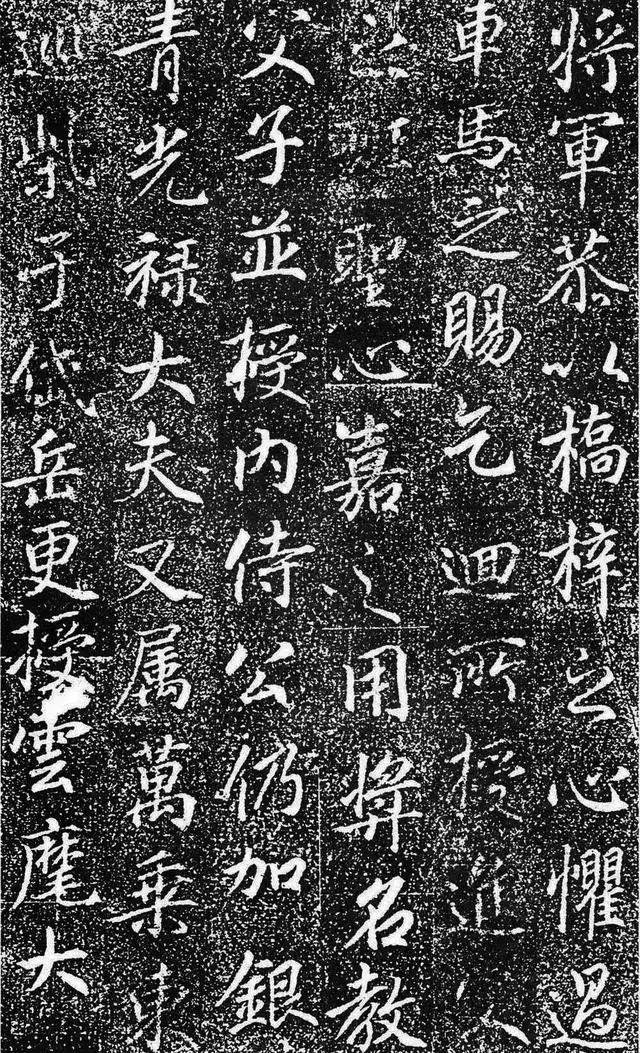 將軍恭以橋梓之心懼過
車馬之賜乞迴所授進父
聖心嘉之用獎名教
父子並授内侍公仍加銀
青光禄大夫又属萬乘東
巡柴于岱岳更授雲麾大